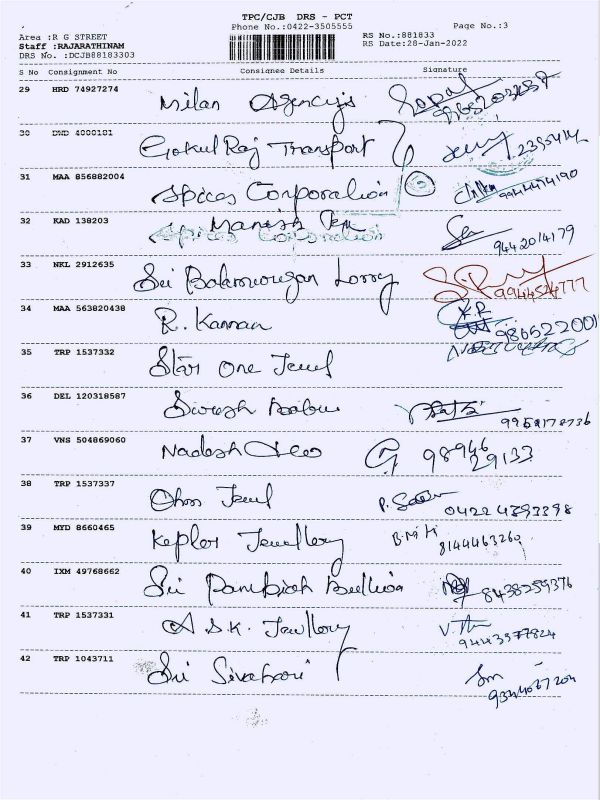 TPC/CJB DRS - PCT
Phone No.:0422-3505555 Page No.:3
Area :R G STREET RS No.:881833
Staff :RAJARATHINAM RS Date:28-Jan-2022
DRS No. :DCJB88183303
S No Consignment No Consignee Details Signature
29 HRD 74927274 Milan Agencys
30 DWD 4000101 Gokul Raj Transport
31 MAA 856882004 Spices Corporation 9944474190
32 KAD 138203 Manish 9442014179
33 NKL 2912635 Sri Balamurugan Lorry 9944524777
34 MAA 563820438 R. Kannan
35 TRP 1537332 Star One Jewel
36 DEL 120318587 Suresh Babu
37 VNS 504869060 98946
29133
38 TRP 1537337 Ohm Jewel 0422 4393398
39 MYD 8660465 Kepler Jewellery 8144463260
40 IXM 49768662 Sri Bullion 8438259376
41 TRP 1537331 A.S.K. Jewllery 9443377824
42 TRP 1043711 Sri Sivahari